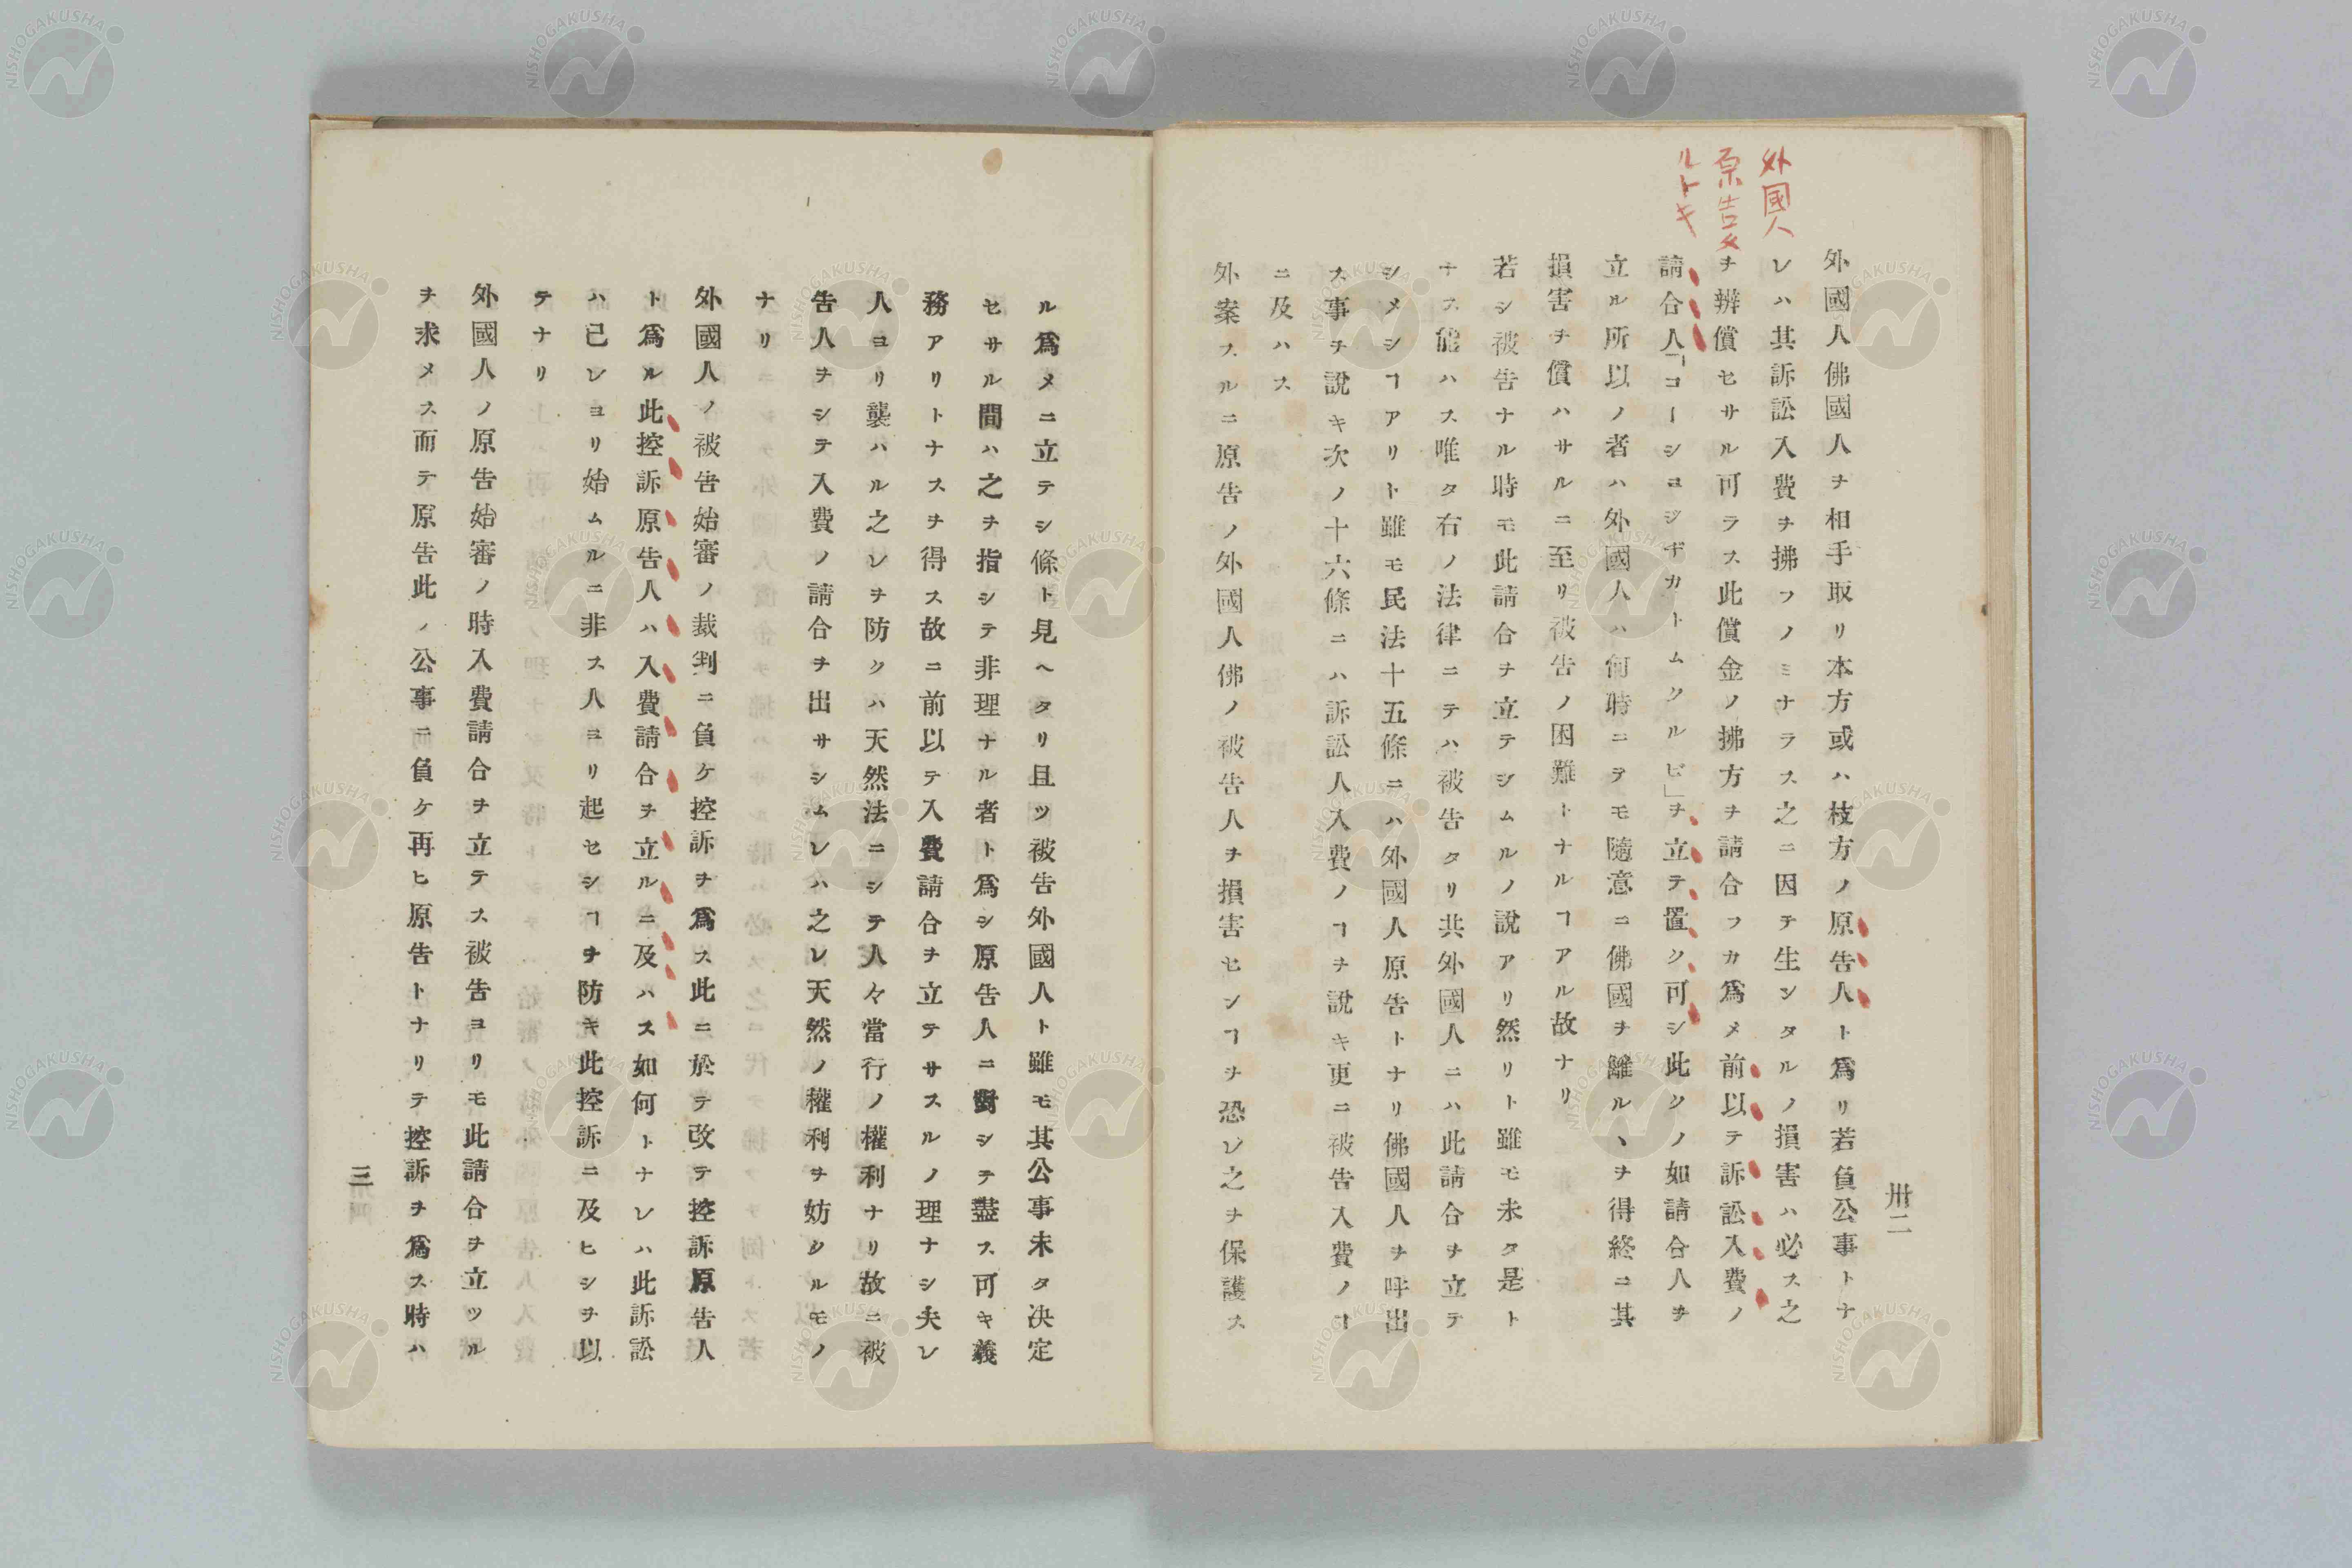 外國人
原告タ
ルトキ
卅二
外國人佛國人ヲ相手取リ本方或ハ枝方ノ原告人ト爲リ若負公事トナ
レハ其訴訟入費ヲ拂フノミナラス之ニ因テ生シタルノ損害ハ必ス之
ヲ辨償セサル可ラス此償金ノ拂方ヲ請合フカ爲メ前以テ訴訟入費ノ
請合人「コーシヨジヂカトムクルビ」ヲ立テ置ク可シ此クノ如請合人ヲ
立ル所以ノ者ハ外國人ハ何時ニテモ隨意ニ佛國ヲ離ルヽヲ得終ニ其
損害ヲ償ハサルニ至リ被告ノ困難トナルヿアル故ナリ
若シ被告ナル時モ此請合ヲ立テシムルノ說アリ然リト雖モ未タ是ト
ナス能ハス唯タ右ノ法律ニテハ被告タリ共外國人ニハ此請合ヲ立テ
シメシヿアリト雖モ民法十五條ニハ外國人原告トナリ佛國人ヲ呼出
ス事ヲ說キ次ノ十六條ニハ訴訟人入費ノヿヲ說キ更ニ被告入費ノヿ
ニ及ハス
外案スルニ原告ノ外國人佛ノ被告人ヲ損害センヿヲ恐レ之ヲ保護ス
ル爲メニ立テシ條ト見ヘタリ且ツ被告外國人ト雖モ其公事未タ决定
セサル間ハ之ヲ指シテ非理ナル者ト爲シ原告人ニ對シテ盡ス可キ義
務アリトナスヲ得ス故ニ前以テ入費請合ヲ立テサスルノ理ナシ夫レ
人ヨリ襲ハル之レヲ防クハ天然法ニシテ人々當行ノ權利ナリ故ニ被
告人ヲシテ入費ノ請合ヲ出サシムレハ之レ天然ノ權利ヲ妨クルモノ
ナリ
外國人ノ被告始審ノ裁判ニ負ケ控訴ヲ爲ス此ニ於テ改テ控訴原告人
ト爲ル此控訴原告人ハ入費請合ヲ立ルニ及ハス如何トナレハ此訴訟
ハ己レヨリ始ムルニ非ス人ヨリ起セシヿヲ防キ此控訴ニ及ヒシヲ以
テナリ
外國人ノ原告始審ノ時入費請合ヲ立テス被告ヨリモ此請合ヲ立ツル
ヲ求メス而テ原告此ノ公事ニ負ケ再ヒ原告トナリテ控訴ヲ爲ス時ハ
三